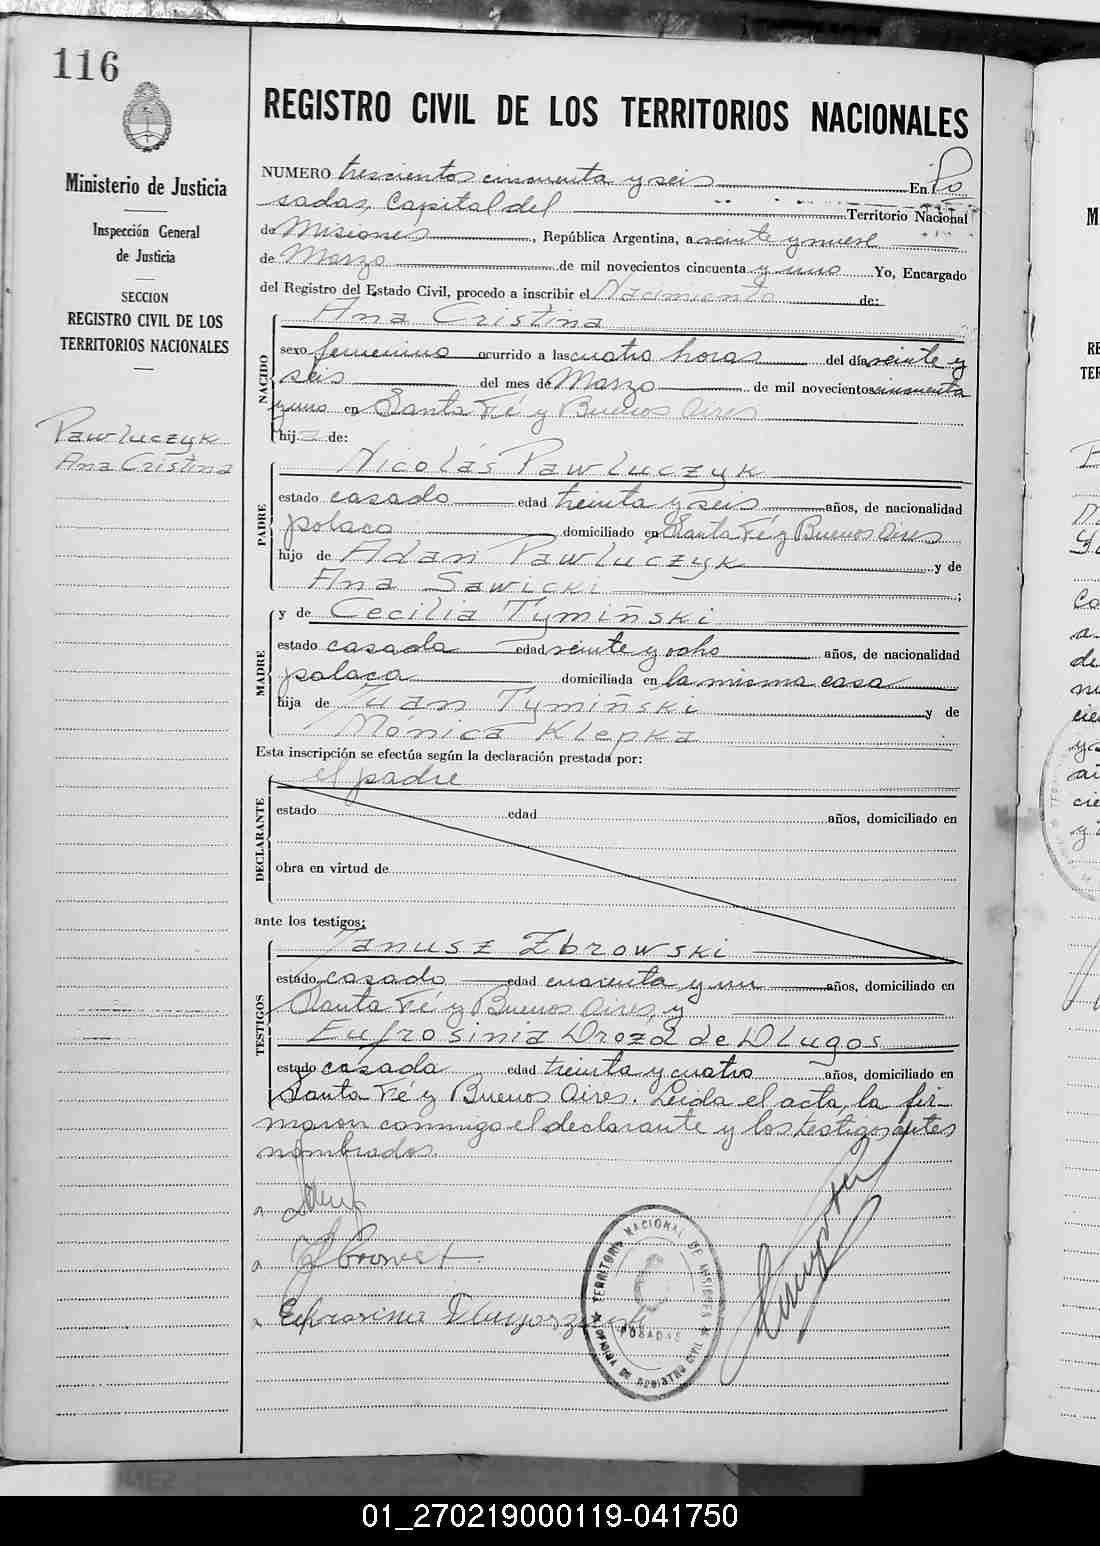 116
Ministerio de Justicia
Inspección General
de Justicia
SECCION
REGISTRO CIVIL DE LOS
TERRITORIOS NACIONALES
Pawluczyk
Ana Cristina
REGISTRO CIVIL DE LOS TERRITORIOS NACIONALES
NUMERO trescientos cincuenta y seis En Po
sadas, Capital del Territorio Nacional
de Misiones, República Argentina, a veinte y nueve
de Marzo de mil novecientos cincuenta y uno Yo, Encargado
del Registro del Estado Civil, procedo a inscribir el Nacimiento de:
NACIDO
Ana Cristina
sexo femenino ocurrido a las cuatro horas del día veinte y
seis del mes de Marzo de mil novecientos cincuenta
y uno en Santa Fé y Buenos Aires
hija de:
PADRE
Nicolás Pawluczyk
estado casado edad treinta y seis años, de nacionalidad
polaca domiciliado en Santa Fé y Buenos Aires
hijo de Adan Pawluczyk y de
Ana Sawicki ;
MADRE
y de Cecilia Tymiñski
estado casada edad veinte y ocho años, de nacionalidad
polaca domiciliada en la misma casa
hija de Juan Tymiñski y de
Mónica Klepka
Esta inscripción se efectúa según la declaración prestada por:
DECLARANTE
el padre
estado edad años, domiciliado en
obra en virtud de
ante los testigos:
TESTIGOS
Janusz Zbrowski
estado casado edad cuarenta y un años, domiciliado en
Santa Fé y Buenos Aires, y
Eufrosinia Drozd de Dlugos
estado casada edad treinta y cuatro años, domiciliado en
Santa Fé y Buenos Aires. Leida el acta, la fir-
maron conmigo el declarante y los testigos antes
nombrados.
TERRITORIO NACIONAL DE MISIONES
POSADAS
OFICINA DE REGISTRO CIVIL
01_270219000119-041750